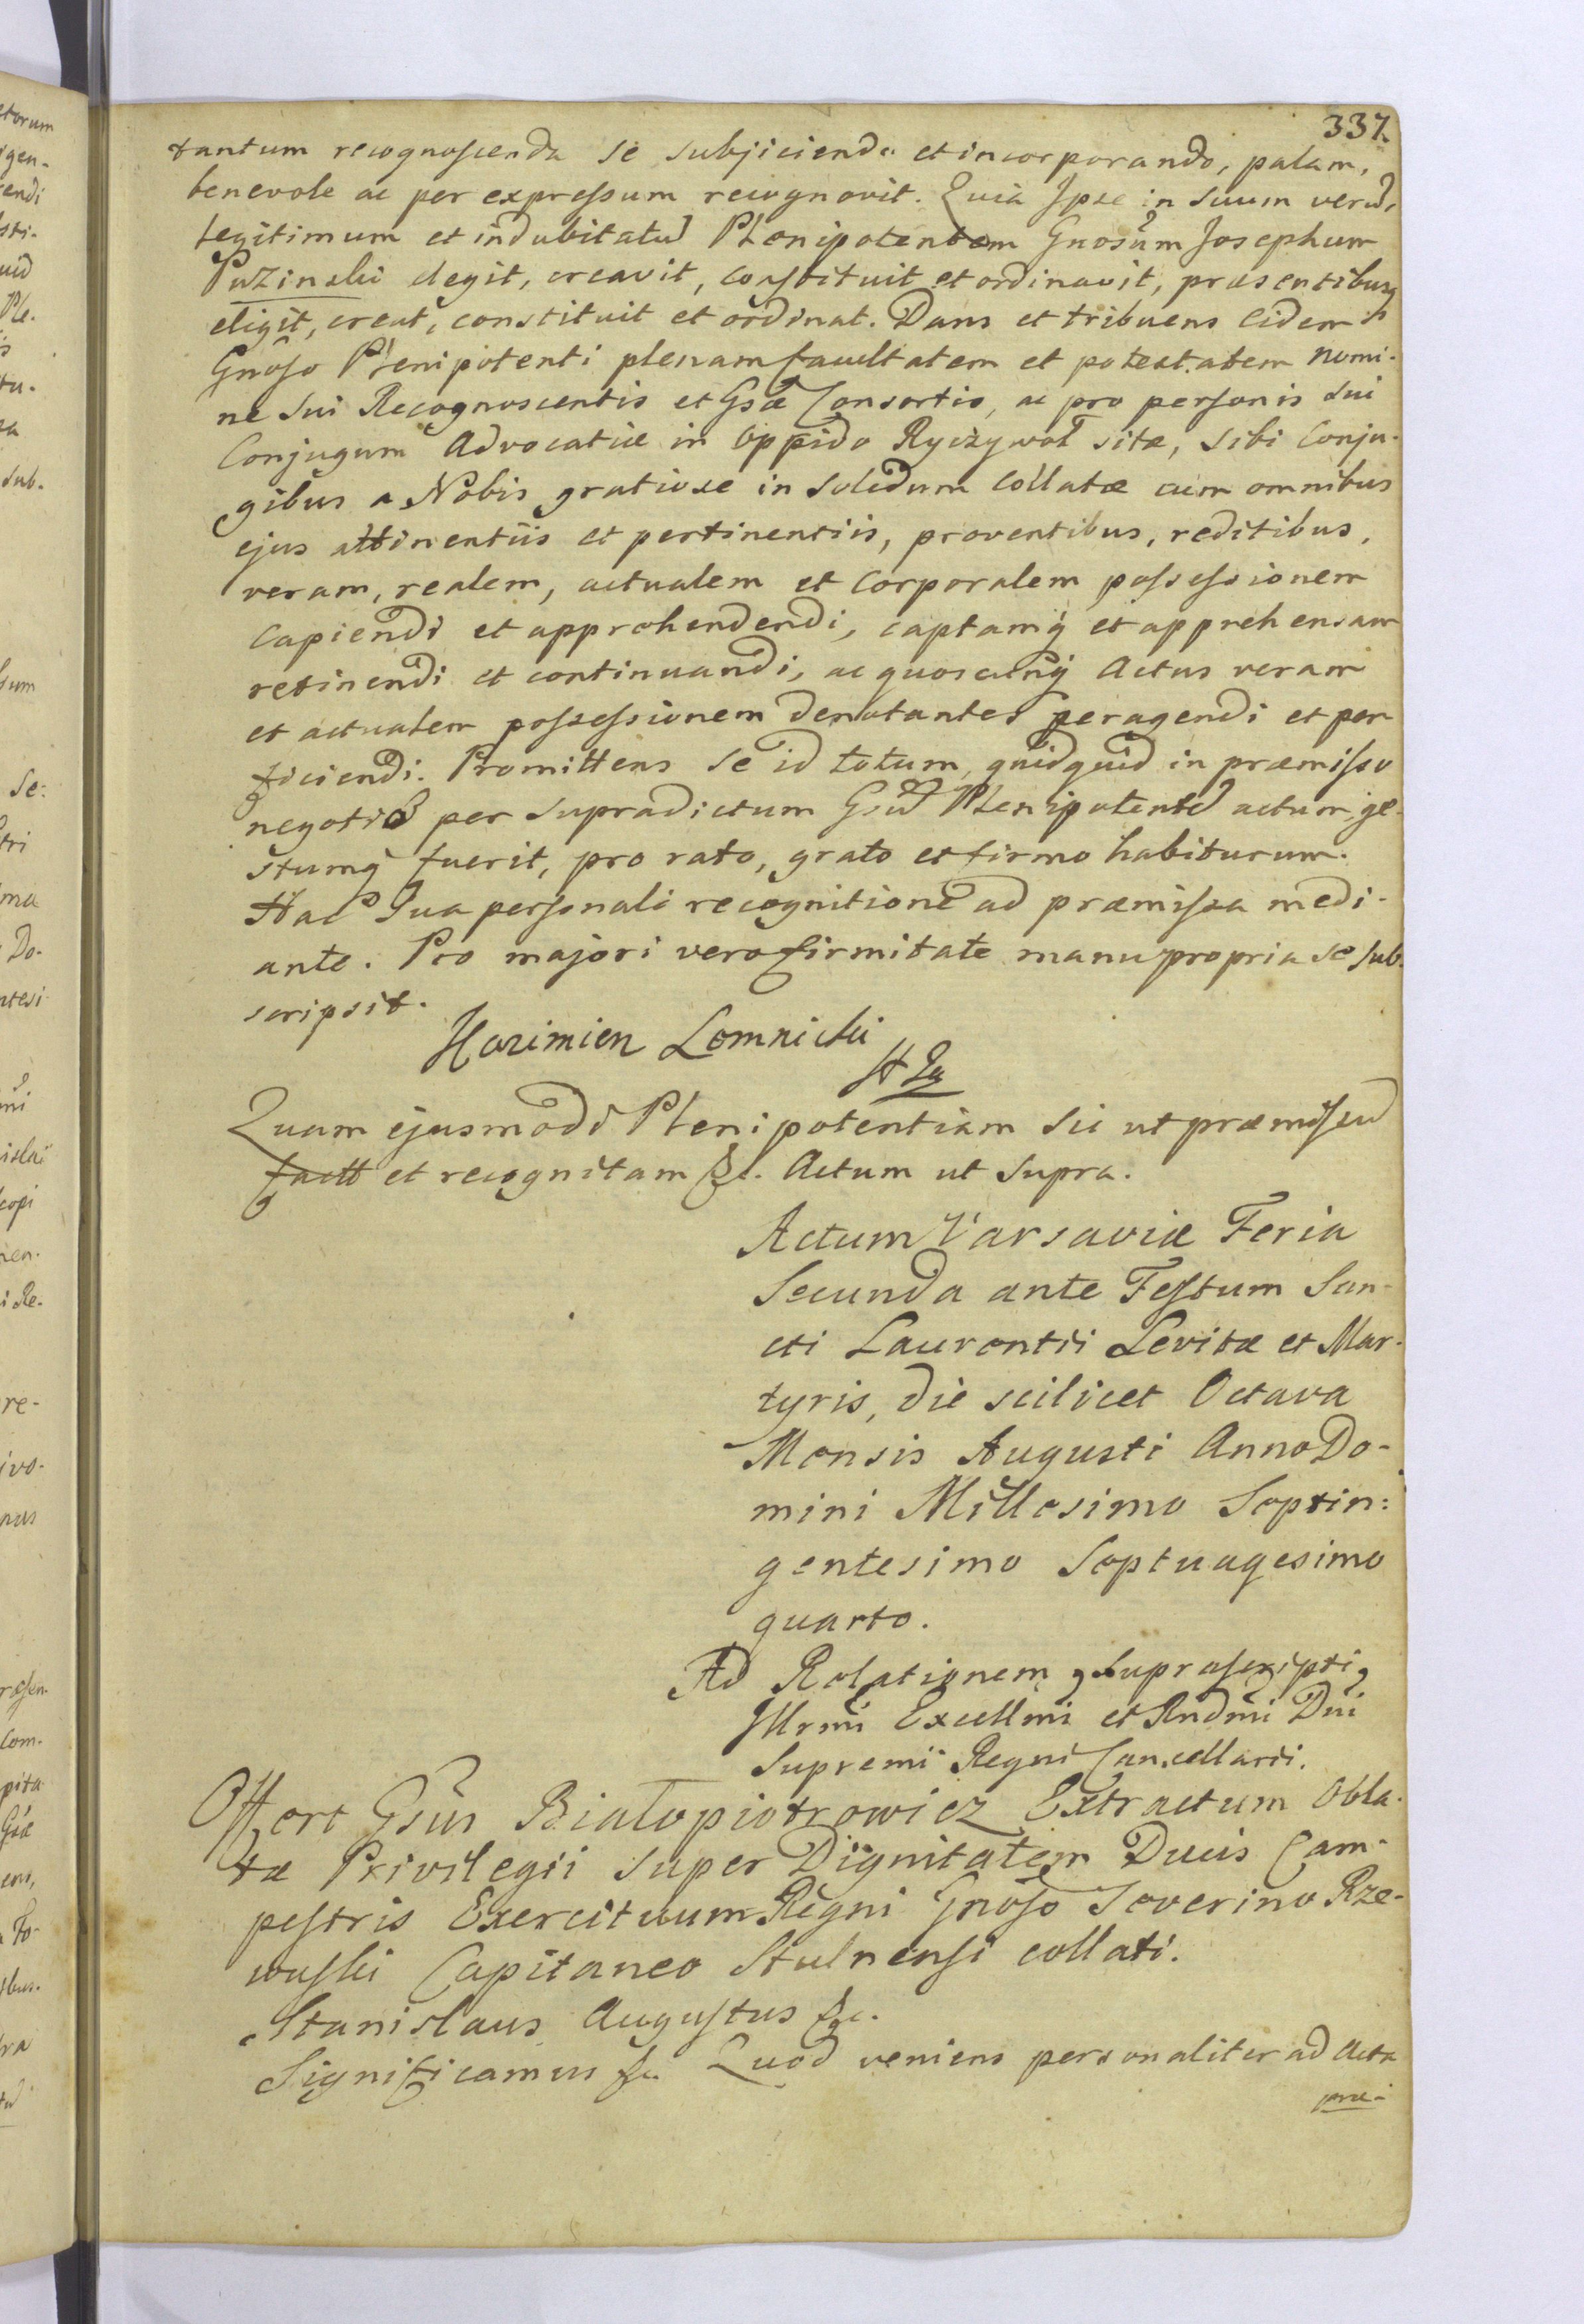 337.
tantum recognoscenda se subjiciendo et incorporando, palam,
benevole ac per expressum recognovit. Quia Ipse in Suum verũ,
legitimum et indubitatũ Plenipotentem Gnosũm Josephum
Puzinski elegit, creavit, constituit et ordinavit, præsentibusq
eligit, creat, constituit et ordinat. Dans et tribuens eidem
Gnoso Plenipotenti plenam facultatem et potestatem nomi-
ne Sui Recognoscentis et Gsæ Consortis, ac pro personis Sui
Conjugum Advocatiæ in Oppido Ryczywoł sitæ, Sibi Conju-
gibus a Nobis gratiose in Solidum Collatæ cum omnibus
ejus attinentiis et pertinentiis, proventibus, reditibus,
veram, realem, actualem et Corporalem possessionem
capiendi et apprehendendi, captamq et apprehensam
retinendi et continuandi, ac quoscunq Actus veram
et actualem possessionem denotantes peragendi et per
ficiendi. Promittens Se id totum, quidquid in præmisso
negotio per Supradictum Gsũ Plenipotentẽ actum, ge-
stumq fuerit, pro rato, grato et firmo habiturum.
Hac Sua personali recognitione ad præmissa medi-
ante. Pro majori vero firmitate manu propria se sub-
scripsit.
Kazimierz Łomnicki
Quam ejusmodi Plenipotentiam Sic ut præmissũ
factt et recognitam &c. Actum ut Supra.
Actum Varsaviæ Feria
Secunda ante Festum San-
cti Laurentii Levitæ et Mar-
tyris, die scilicet Octava
Mensis Augusti Anno Do-
mini Millesimo Septin:
gentesimo Septuagesimo
quarto.
Ad Relationem Suprascripti
Illrmi Excellmi et Rndmi Dni
Supremi Regni Cancellarii.
Offert Gsũs Białopiotrowicz Extractum Obla-
tæ Privilegii Super Dignitatem Ducis Cam-
pestris Exercituum Regni Gnoso Severino Rze-
wuski Capitaneo Stulnensi collati.
Stanislaus Augustus &c.
Significamus &c. Quod veniens personaliter ad Acta
præ-